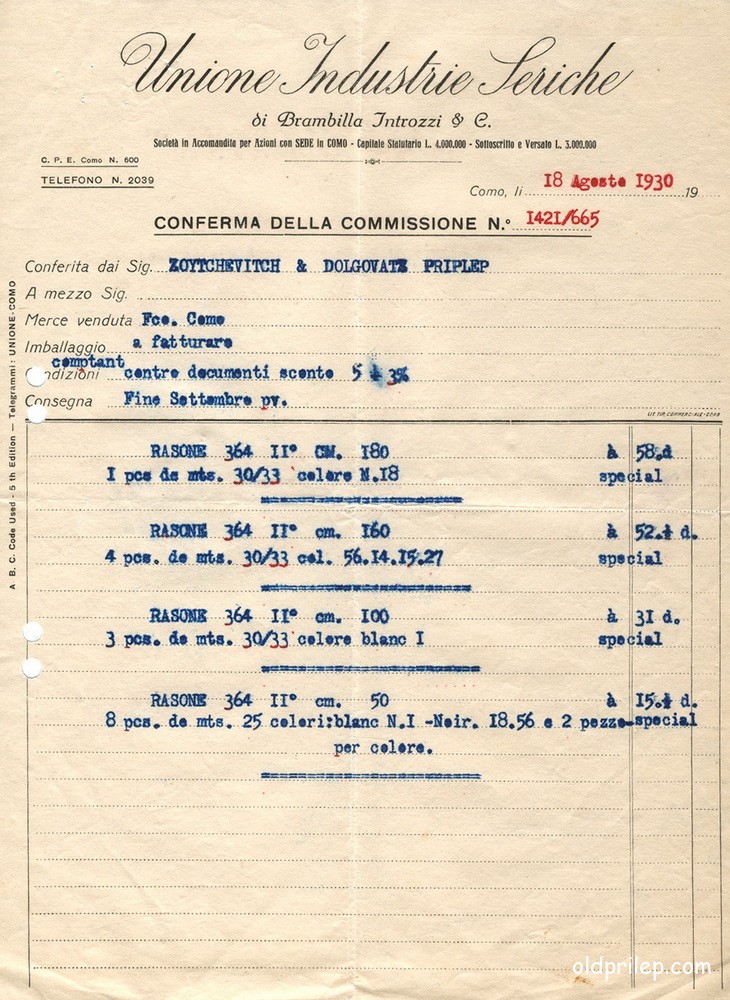 Unione Industrie Seriche
di Brambilla Introzzi & C.
Società in Accomandita per Azioni con SEDE in COMO - Capitale Statutario L. 4.000.000 - Sottoscritto e Versato L. 3.000.000
C. P. E. Como N. 600
TELEFONO N. 2039
Como, li 18 Agosto 1930 19
CONFERMA DELLA COMMISSIONE N.° 1421/665
Conferita dai Sig. ZOYTCHEVITCH & DOLGOVATZ PRIPLEP
A mezzo Sig.
Merce venduta Fco. Como
Imballaggio a fatturare
comptant
Condizioni contro documenti sconto 5 + 3%
Consegna Fine Settembre pv.
LIT. TIP. COMMERCIALE - COMO
A B. C. Code Used - 5 th Edition — Telegrammi: UNIONE-COMO
RASONE 364 II° CM. 180 à 58.d
I pcs de mts. 30/33 colore N.18 special
RASONE 364 II° cm. 160 à 52.½ d.
4 pcs. de mts. 30/33 col. 56.14.15.27 special
RASONE 364 II° cm. 100 à 31 d.
3 pcs. de mts. 30/33 colore blanc I special
RASONE 364 II° cm. 50 à 15.½ d.
8 pcs. de mts. 25 colori:blanc N.I -Noir. 18.56 e 2 pezze-special
per colore.
oldprilep.com